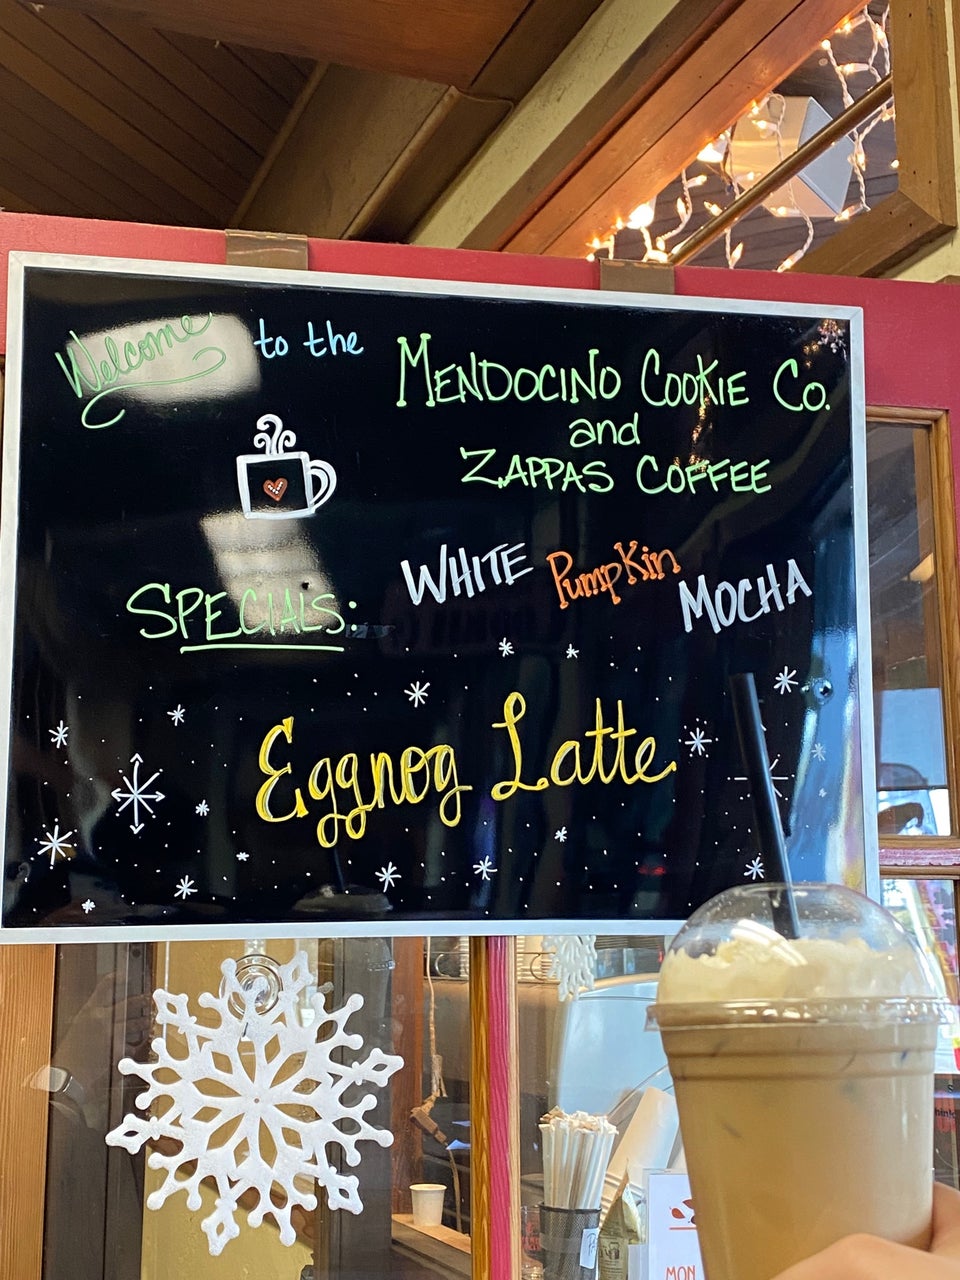 Welcome to the
MENDOCINO COOKIE CO.
and
ZAPPAS COFFEE
SPECIALS: WHITE PumpKin MOCHA
Eggnog Latte
MON